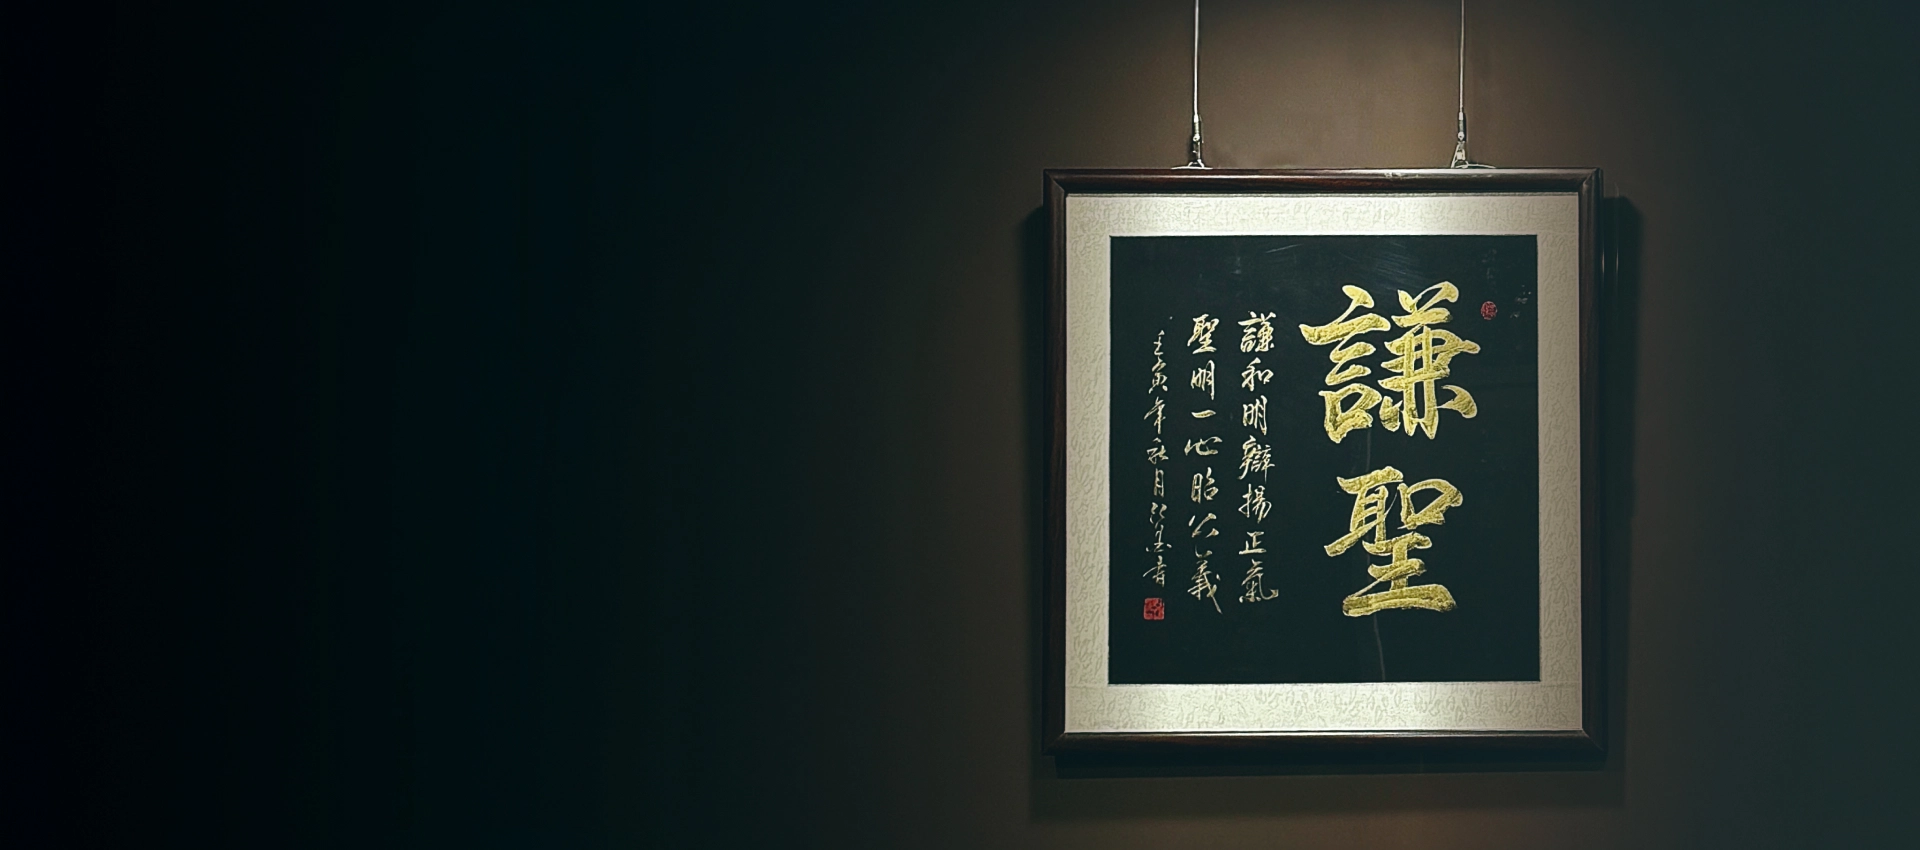 謙聖
謙和明辯揚正氣
聖明一心昭公義
壬寅年秋月